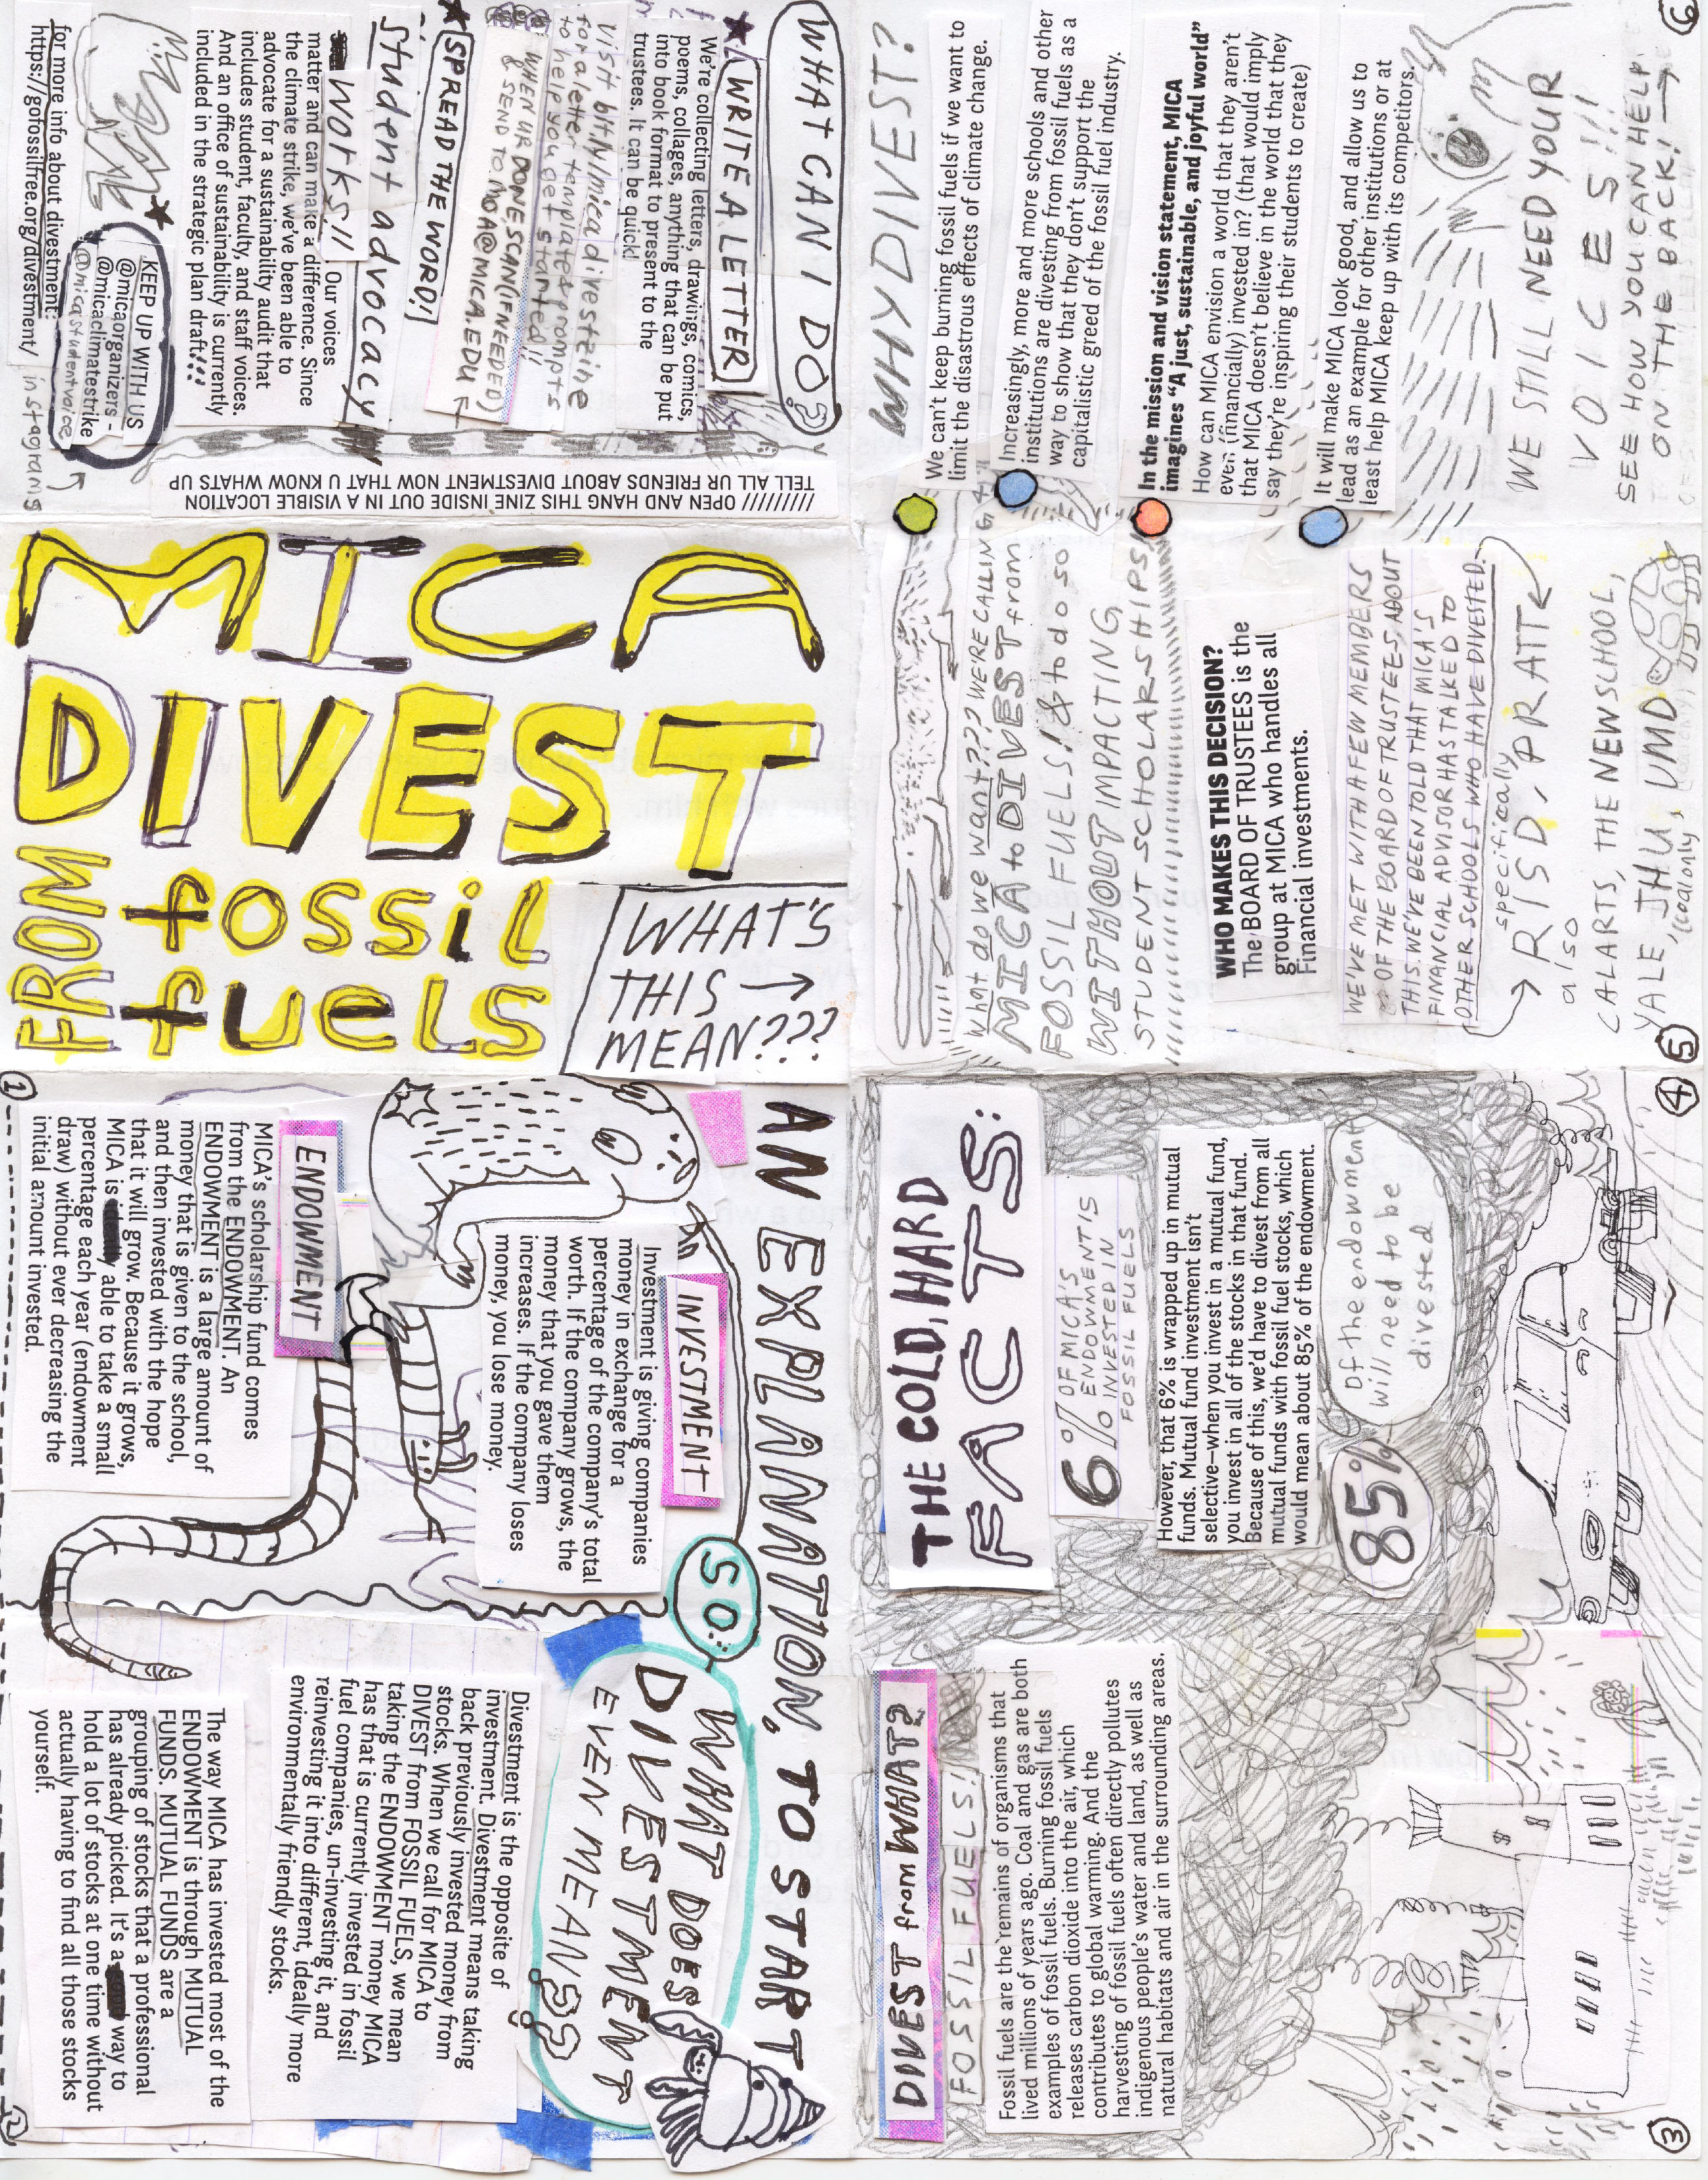 MICA
DIVEST
FROM fossil
fuels
WHAT'S
THIS →
MEAN???
AN EXPLANATION, TO START
INVESTMENT
Investment is giving companies
money in exchange for a
percentage of the company's total
worth. If the company grows, the
money that you gave them
increases. If the company loses
money, you lose money.
ENDOWMENT
MICA's scholarship fund comes
from the ENDOWMENT. An
ENDOWMENT is a large amount of
money that is given to the school,
and then invested with the hope
that it will grow. Because it grows,
MICA is able to take a small
percentage each year (endowment
draw) without ever decreasing the
initial amount invested.
1
SO:
WHAT DOES
DIVESTMENT
EVEN MEAN??
Divestment is the opposite of
investment. Divestment means taking
back previously invested money from
stocks. When we call for MICA to
DIVEST from FOSSIL FUELS, we mean
taking the ENDOWMENT money MICA
has that is currently invested in fossil
fuel companies, un-investing it, and
reinvesting it into different, ideally more
environmentally friendly stocks.
The way MICA has invested most of the
ENDOWMENT is through MUTUAL
FUNDS. MUTUAL FUNDS are a
grouping of stocks that a professional
has already picked. It's a way to
hold a lot of stocks at one time without
actually having to find all those stocks
yourself.
2
DIVEST from WHAT?
FOSSIL FUELS!
Fossil fuels are the remains of organisms that
lived millions of years ago. Coal and gas are both
examples of fossil fuels. Burning fossil fuels
releases carbon dioxide into the air, which
contributes to global warming. And the
harvesting of fossil fuels often directly pollutes
indigenous people's water and land, as well as
natural habitats and air in the surrounding areas.
$ $
3
THE COLD, HARD
FACTS:
6% OF MICA'S
ENDOWMENT IS
INVESTED IN
FOSSIL FUELS
However, that 6% is wrapped up in mutual
funds. Mutual fund investment isn't
selective—when you invest in a mutual fund,
you invest in all of the stocks in that fund.
Because of this, we'd have to divest from all
mutual funds with fossil fuel stocks, which
would mean about 85% of the endowment.
85%
Of the endowment
will need to be
divested
4
What do we want??? WE'RE CALLING 4
MICA to DIVEST from
FOSSIL FUELS! & to do so
WITHOUT IMPACTING
STUDENT SCHOLARSHIPS!
WHO MAKES THIS DECISION?
The BOARD OF TRUSTEES is the
group at MICA who handles all
Financial investments.
WE'VE MET WITH A FEW MEMBERS
OF THE BOARD OF TRUSTEES, ABOUT
THIS. WE'VE BEEN TOLD THAT MICA'S
FINANCIAL ADVISOR HAS TALKED TO
OTHER SCHOOLS WHO HAVE DIVESTED.
specifically
→ RISD, PRATT ←
also
CALARTS, THE NEW SCHOOL,
YALE, JHU, UMD
(coal only)
5
WHY DIVEST?
We can't keep burning fossil fuels if we want to
limit the disastrous effects of climate change.
Increasingly, more and more schools and other
institutions are divesting from fossil fuels as a
way to show that they don't support the
capitalistic greed of the fossil fuel industry.
In the mission and vision statement, MICA
imagines “A just, sustainable, and joyful world”
How can MICA envision a world that they aren't
even (financially) invested in? (that would imply
that MICA doesn't believe in the world that they
say they're inspiring their students to create)
It will make MICA look good, and allow us to
lead as an example for other institutions or at
least help MICA keep up with its competitors.
WE STILL NEED YOUR
VOICES!!!
SEE HOW YOU CAN HELP
ON THE BACK! →
6
WHAT CAN I DO?
WRITE A LETTER
We're collecting letters, drawings, comics,
poems, collages, anything that can be put
into book format to present to the
trustees. It can be quick!
Visit bit.ly/micadivestzine
for a letter template & prompts
to help you get started!!
WHEN UR DONE SCAN (IF NEEDED)
& SEND TO MOA@MICA.EDU ←
SPREAD THE WORD!
student advocacy
works!! Our voices
matter and can make a difference. Since
the climate strike, we've been able to
advocate for a sustainability audit that
includes student, faculty, and staff voices.
And an office of sustainability is currently
included in the strategic plan draft!!!
KEEP UP WITH US
@micaorganizers -
@micaclimatestrike
@micastudentvoice
instagrams
for more info about divestment:
https://gofossilfree.org/divestment/
////////// OPEN AND HANG THIS ZINE INSIDE OUT IN A VISIBLE LOCATION
TELL ALL UR FRIENDS ABOUT DIVESTMENT NOW THAT U KNOW WHATS UP